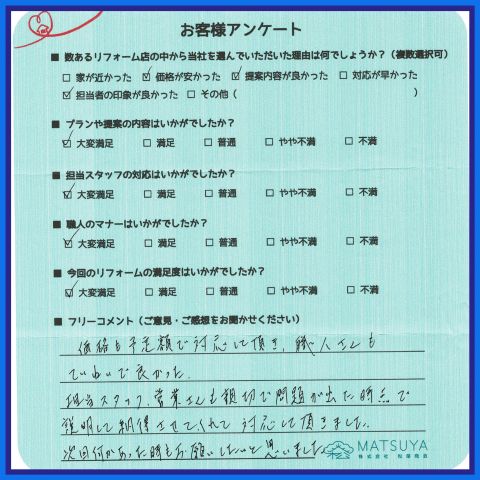 お客様アンケート
■ 数あるリフォーム店の中から当社を選んでいただいた理由は何でしょうか?（複数選択可）
□ 家が近かった ☑ 価格が安かった ☑ 提案内容が良かった □ 対応が早かった
☑ 担当者の印象が良かった □ その他（ ）
■ プランや提案の内容はいかがでしたか?
☑ 大変満足 □ 満足 □ 普通 □ やや不満 □ 不満
■ 担当スタッフの対応はいかがでしたか?
☑ 大変満足 □ 満足 □ 普通 □ やや不満 □ 不満
■ 職人のマナーはいかがでしたか?
☑ 大変満足 □ 満足 □ 普通 □ やや不満 □ 不満
■ 今回のリフォームの満足度はいかがですか?
☑ 大変満足 □ 満足 □ 普通 □ やや不満 □ 不満
■ フリーコメント（ご意見・ご感想をお聞かせください）
価格も予定額で対応して頂き、職人さんも
ていねいで良かった。
担当スタッフ、営業さんも親切で問題が出た時点で
説明して納得させてくれて対応して頂きました。
次回何かあった時もお願いしたいと思いました。
MATSUYA
株式会社 松屋商店